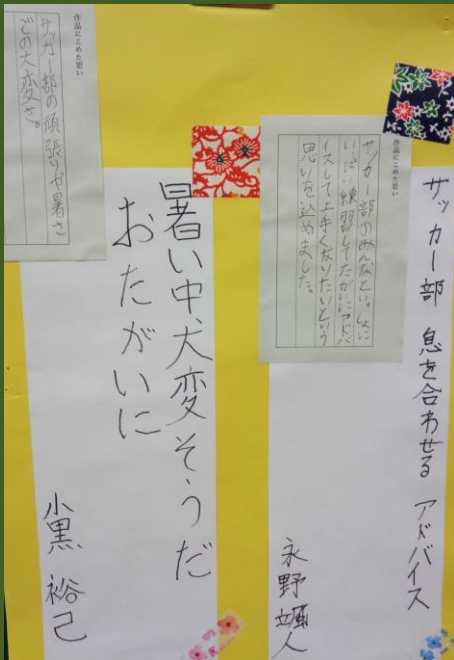 サッカー部 息を合わせる アドバイス
永野 颯人
作品にこめた思い
サッカー部のみんなといっしょに
いっぱい練習してたがいにアドバ
イスして上手くなりたいという
思いを込めました。
暑い中、大変そうだ
おたがいに
小黒 裕己
作品にこめた思い
サッカー部の頑張りや暑さ
での大変さ。